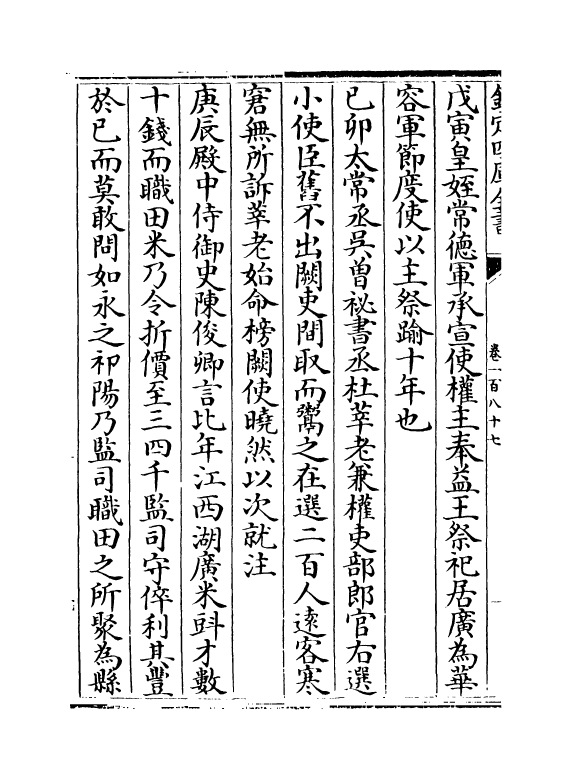 欽定四庫全書
卷一百八十七
戊寅皇姪常德軍承宣使權主奉益王祭祀居廣為華
容軍節度使以主祭踰十年也
已卯太常丞吳曽祕書丞杜莘老兼權吏部郎官右選
小使臣舊不出闕吏間取而鬻之在選二百人逺客寒
窘無所訴莘老始命榜闕使曉然以次就注
庚辰殿中侍御史陳俊卿言比年江西湖廣米㪷才數
十錢而職田米乃令折價至三四千監司守倅利其豐
於已而莫敢問如永之祁陽乃監司職田之所聚為縣